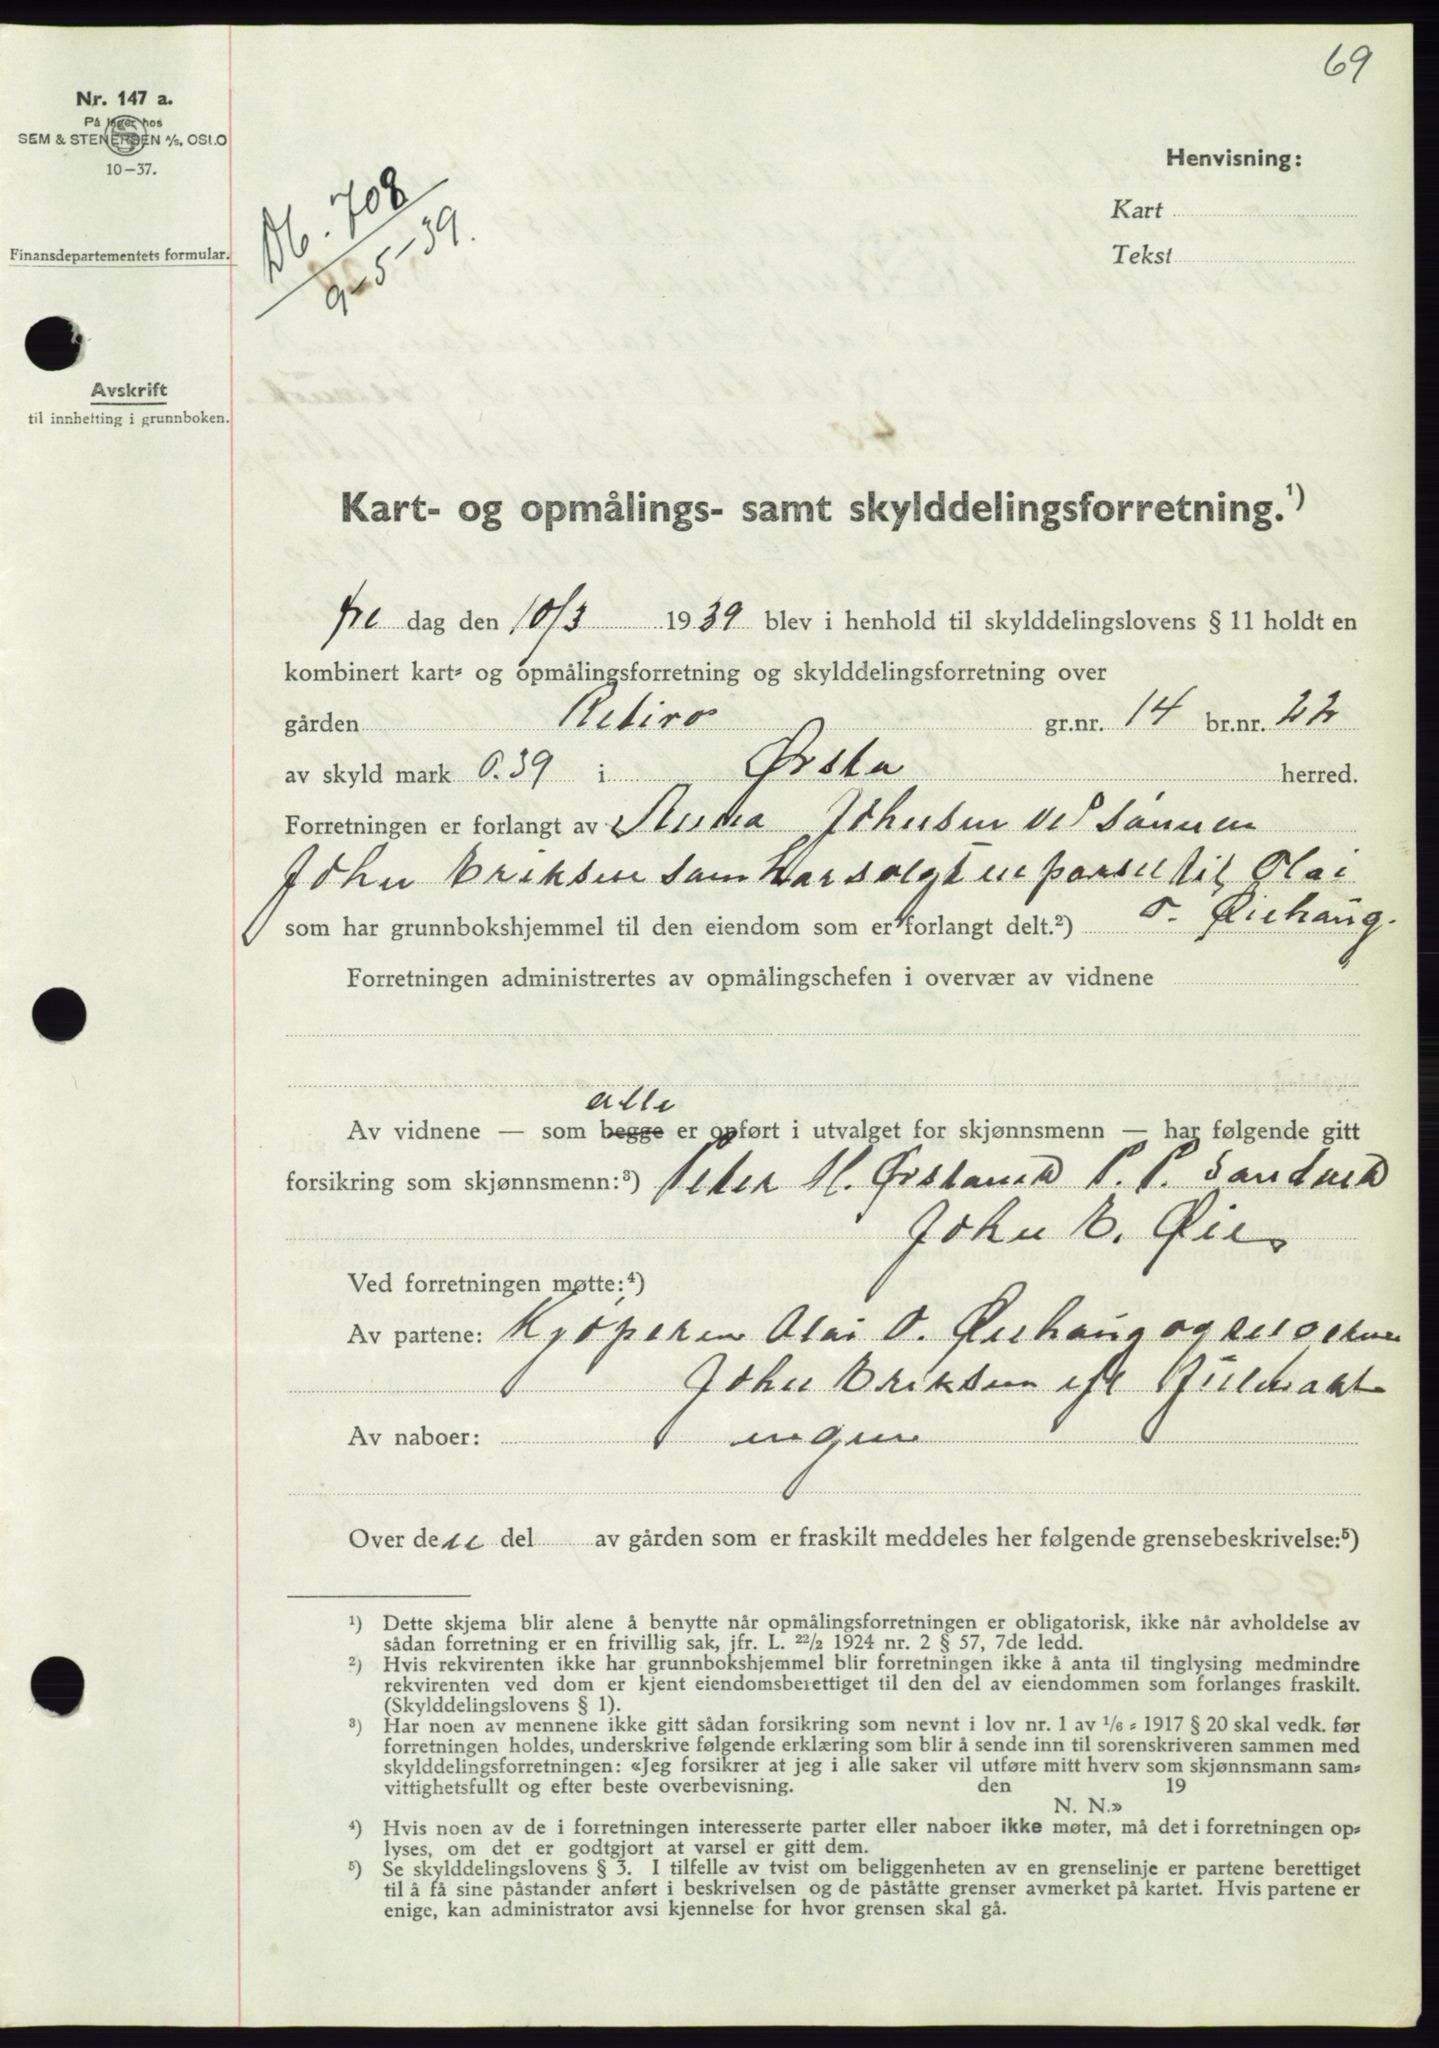 69
Nr. 147 a.
På lager hos
SEM & STENERSEN A/S, OSLO
10-37.
Finansdepartementets formular.
Avskrift
til innhefting i grunnboken.
Db. 708
9-5-39.
Henvisning:
Kart
Tekst
Kart- og opmålings- samt skylddelingsforretning.¹)
Fre dag den 10/3 1939 blev i henhold til skylddelingslovens § 11 holdt en
kombinert kart- og opmålingsforretning og skylddelingsforretning over
gården Retiro gr.nr. 14 br.nr. 22
av skyld mark 0.39 i Ørsta herred.
Forretningen er forlangt av Anna Johnsen ved sønnen
John Eriksen som har solgt en parsel til Olai
O. Øiehaug.
som har grunnbokshjemmel til den eiendom som er forlangt delt.²)
Forretningen administrertes av opmålingschefen i overvær av vidnene
alle
Av vidnene — som begge er opført i utvalget for skjønnsmenn — har følgende gitt
forsikring som skjønnsmenn:³) Peter H. Ørstavik P. P. Sandvik
John E. Øie
Ved forretningen møtte:⁴)
Av partene: Kjøperen Olai O. Øiehaug og selgeren
John Eriksen efl fullmakt
Av naboer: ingen
Over den del av gården som er fraskilt meddeles her følgende grensebeskrivelse:⁵)
¹) Dette skjema blir alene å benytte når opmålingsforretningen er obligatorisk, ikke når avholdelse av
sådan forretning er en frivillig sak, jfr. L. 22/2 1924 nr. 2 § 57, 7de ledd.
²) Hvis rekvirenten ikke har grunnbokshjemmel blir forretningen ikke å anta til tinglysing medmindre
rekvirenten ved dom er kjent eiendomsberettiget til den del av eiendommen som forlanges fraskilt.
(Skylddelingslovens § 1).
³) Har noen av mennene ikke gitt sådan forsikring som nevnt i lov nr. 1 av 1/6 - 1917 § 20 skal vedk. før
forretningen holdes, underskrive følgende erklæring som blir å sende inn til sorenskriveren sammen med
skylddelingsforretningen: «Jeg forsikrer at jeg i alle saker vil utføre mitt hverv som skjønnsmann sam-
vittighetsfullt og efter beste overbevisning. den 19
N. N.»
⁴) Hvis noen av de i forretningen interesserte parter eller naboer ikke møter, må det i forretningen op-
lyses, om det er godtgjort at varsel er gitt dem.
⁵) Se skylddelingslovens § 3. I tilfelle av tvist om beliggenheten av en grenselinje er partene berettiget
til å få sine påstander anført i beskrivelsen og de påståtte grenser avmerket på kartet. Hvis partene er
enige, kan administrator avsi kjennelse for hvor grensen skal gå.